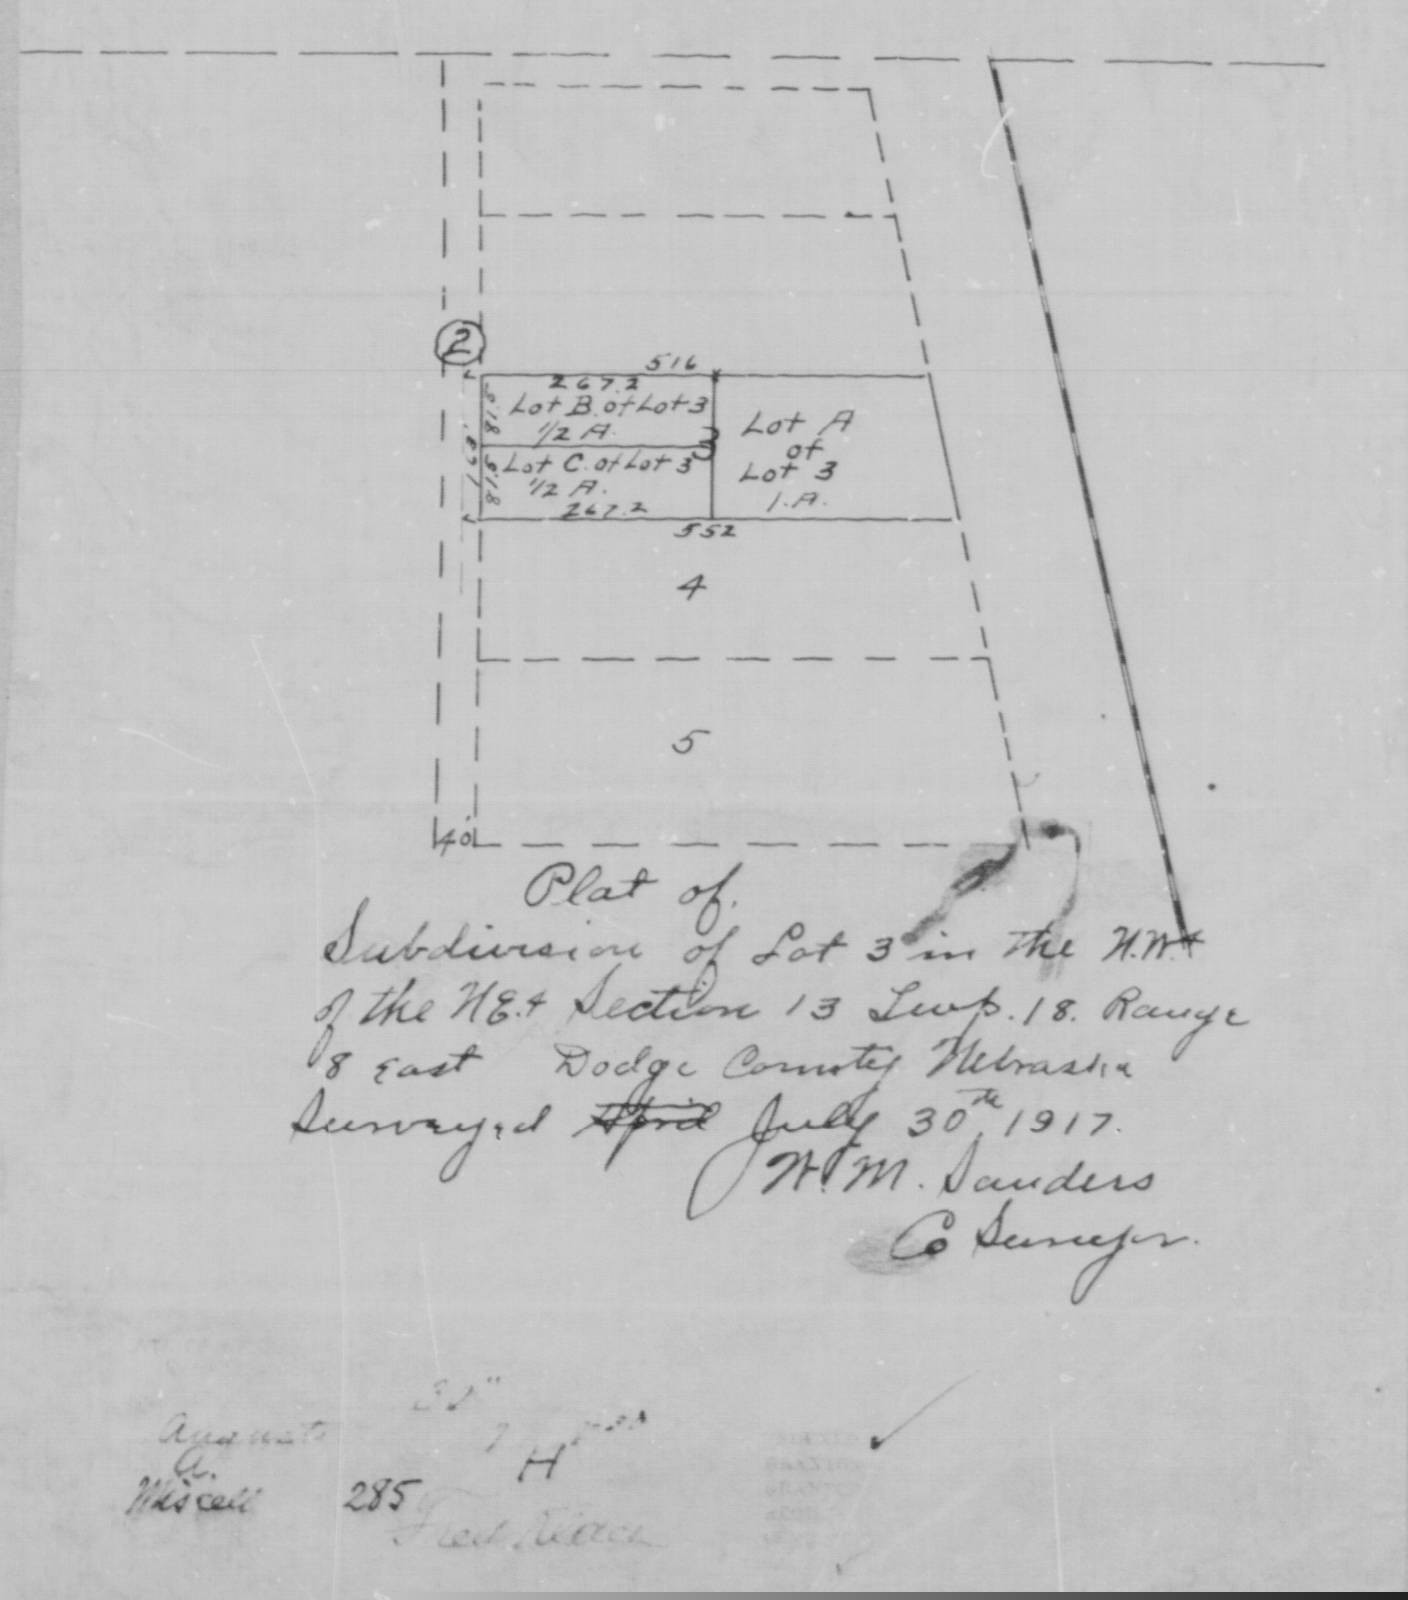 2
516
267.2
81.5
Lot B. of Lot 3
1/2 A.
3
Lot A
of
Lot 3
1.A.
163.
81.5
Lot C. of Lot 3
1/2 A.
267.2
552
4
5
40'
Plat of.
Subdivision of Lot 3 in the N.W.4
of the N.E.4 Section 13 Twp. 18. Range
8 East Dodge County Nebraska
Surveyed April July 30th 1917.
W. M. Sanders
Co Surveyor.
H
A.
Miscell 285
Fred